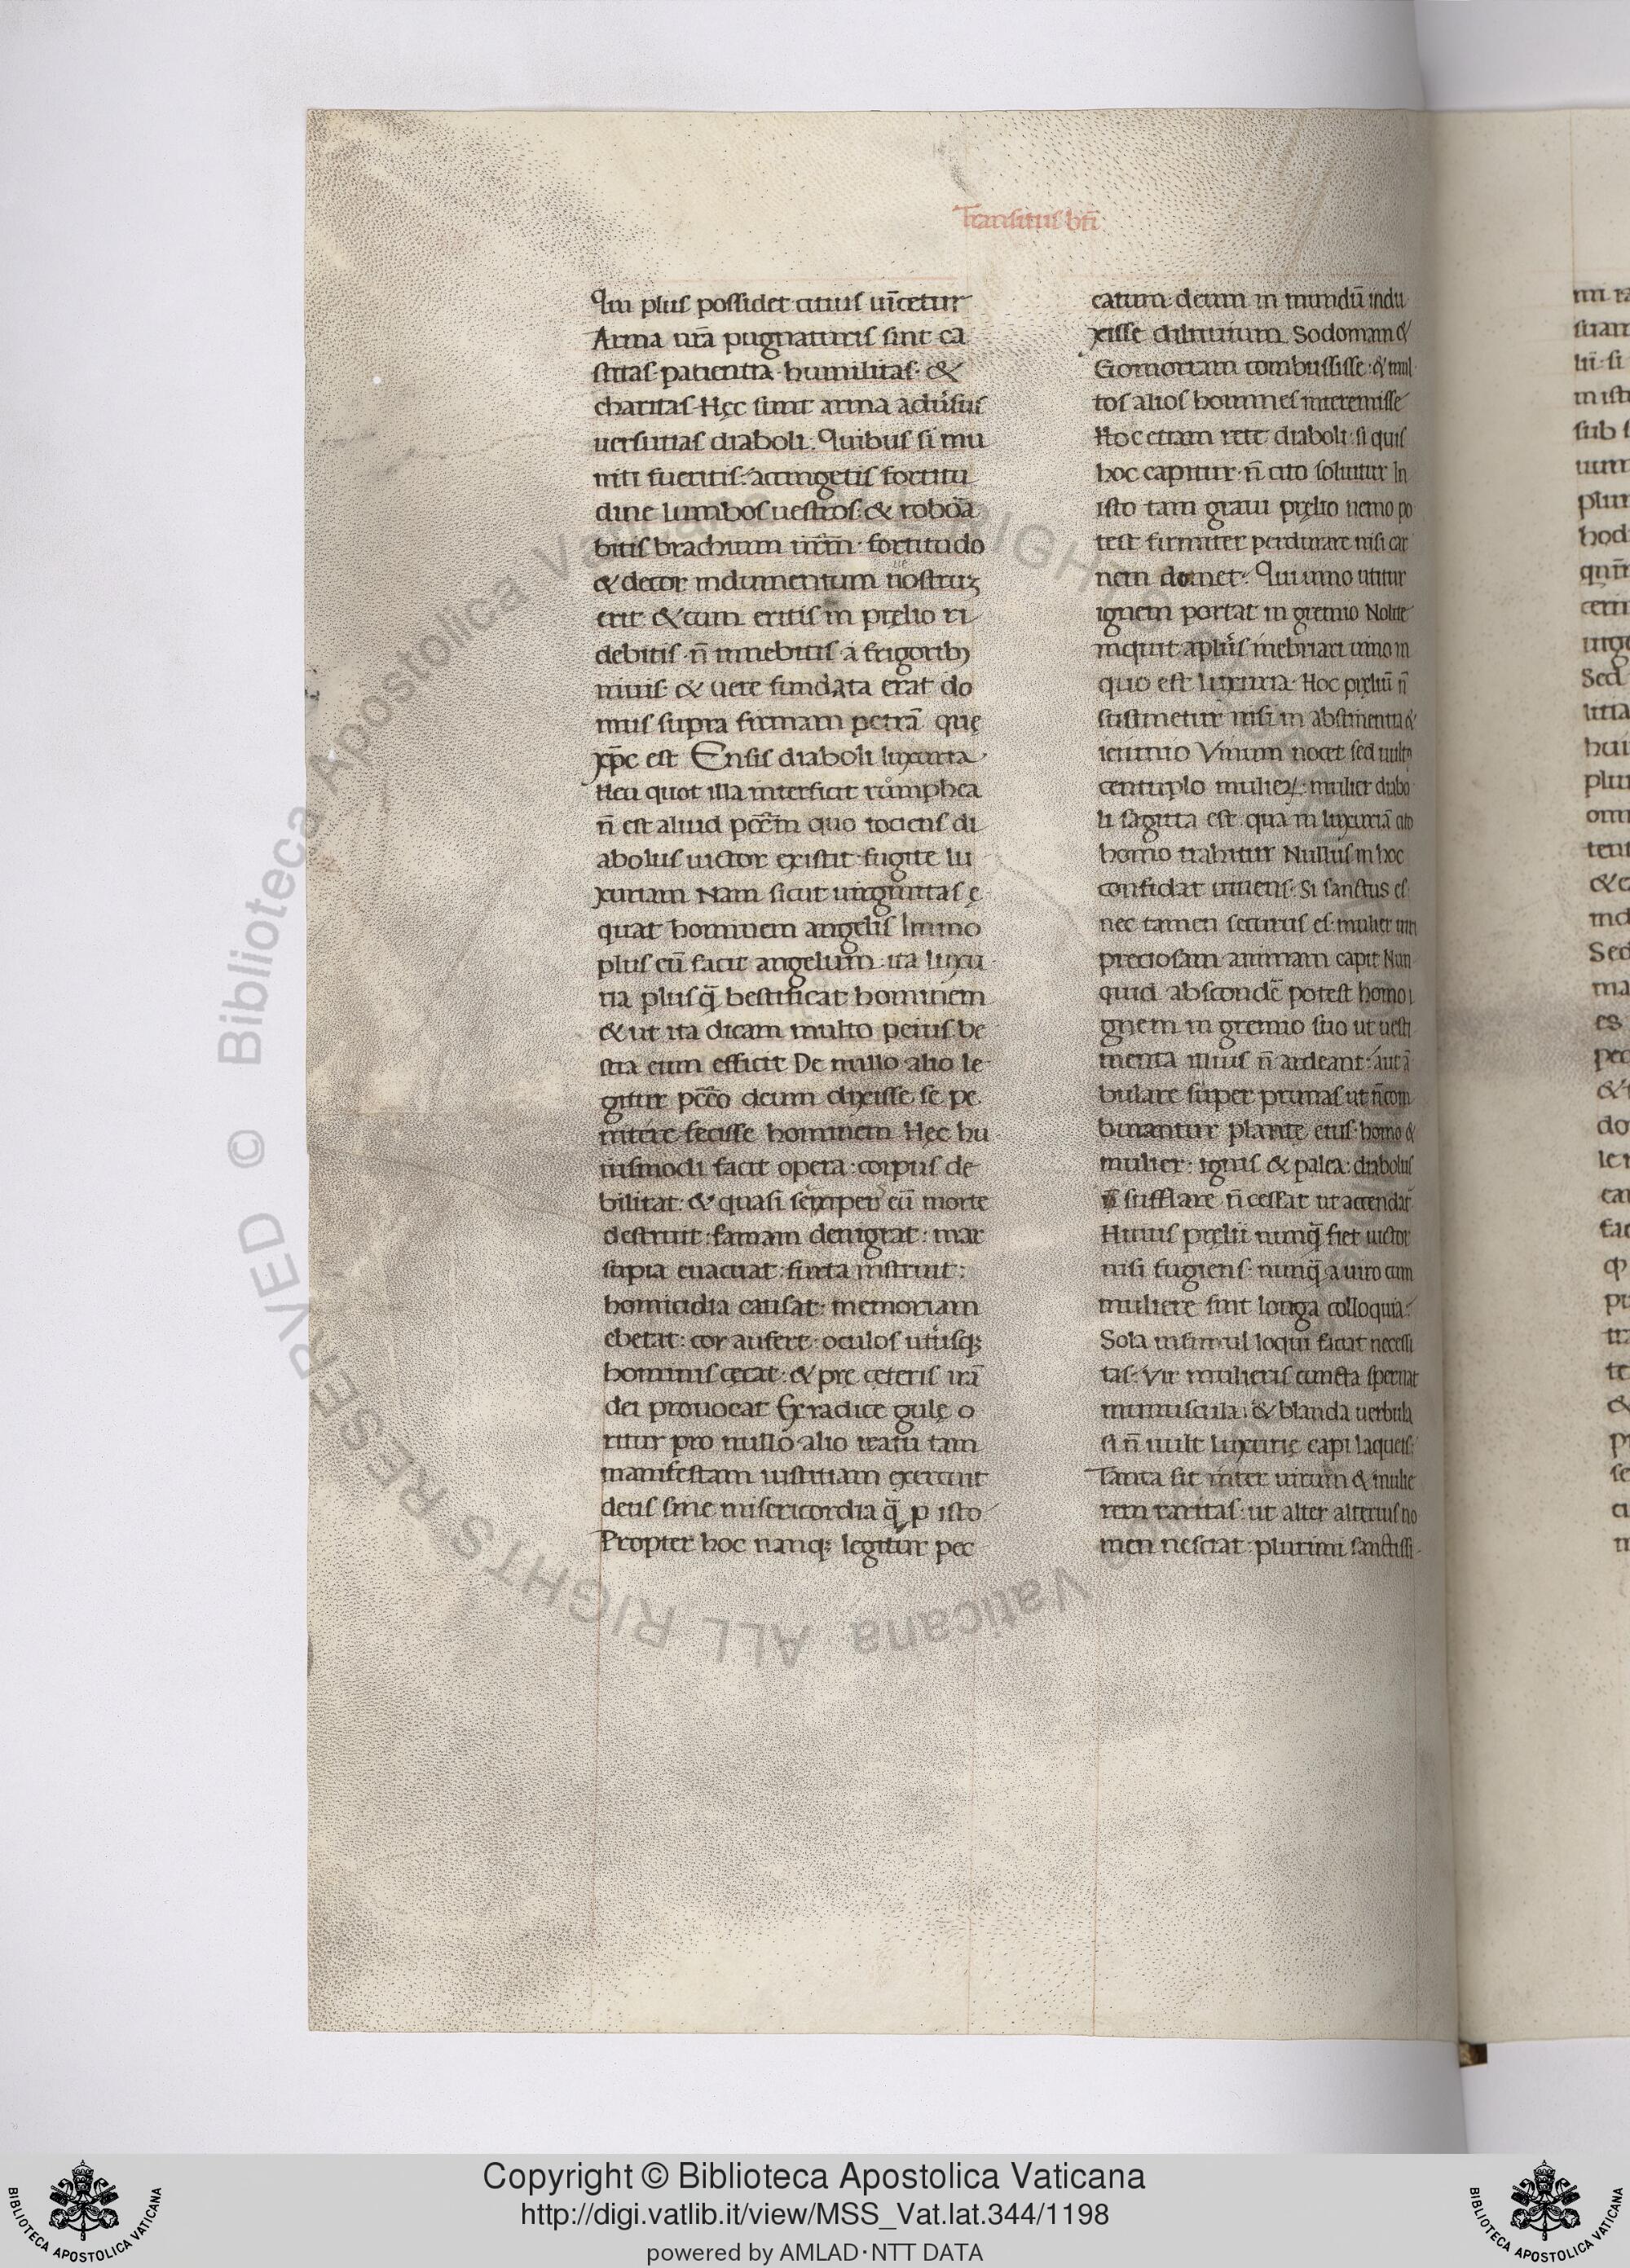 Transitus bt̄i
Qui plus possidet citius uīcetur
Arma ur̄a pugnaturis sint ca
stitas· patientia· humilitas· &
charitas· Hęc sunt arma aduẽsus
uersutias diaboli. Quibus si mu
niti fueritis: accingetis fortitu
dine lumbos uestros: & robora
bitis brachium ur̄m· fortitudo
& decor indumentum nostruꝫ
erit· & cum eritis in pręlio ri
debitis· n̄ timebitis a frigoribꝫ
niuis· & uere fundata erat do
mus supra firmam petrā quę
xp̄c est Ensis diaboli luxuria
Heu quot illa interficit rumphea
n̄ est aliud pcc̄m quo tociens di
abolus uictor existit: fugite lu
xuriam Nam sicut uirginitas ę
quat hominem angelis Immo
plus eū facit angelum· ita luxu
ria plusq̄ bestificat hominem
& ut ita dicam multo peius be
stia eum efficit De nullo alio le
gitur pcc̄o deum dixisse se pe
nitere fecisse hominem Hęc hu
iusmodi facit opera: corpus de
bilitat: & quasi semper eū morte
destruit: famam denigrat: mar
supia euacuat: furta instruit:
homicidia causat: memoriam
ebetat: cor aufert: oculos utriusqꝫ
hominis cęcat: & pre cęteris irā
dei prouocat Ex radice gulę o
ritur pro nullo alio reatu tam
manifestam iustitiam exercuit
deus sine misericordia q̄ p isto
Propter hoc nanqꝫ legitur pec
catum deum in mundū indu
xisse diluuium Sodomam &
Gomorram combussisse: & mul
tos alios homines interemisse
Hoc etiam rete diaboli: si quis
hoc capitur· n̄ cito soluitur In
isto tam graui pręlio nemo po
test firmiter perdurare nisi car
nem domet· Qui uino utitur
ignem portat in gremio Nolite
inquit apl̄us inebriari uino in
quo est luxuria· Hoc pręliū n̄
sustinetur nisi in abstinentia &
ieiunio Vinum nocet sed multo
centuplo mulier: mulier diabo
li sagitta est qua in luxuriā cito
homo trahitur Nullus in hoc
confidat uiuens· Si sanctus es
nec tamen securus es· mulier uiri
preciosam animam capit Nun
quid abscondẽ potest homo i
gnem in gremio suo ut uesti
menta illius n̄ ardeant: aut ā
bulare super prunas ut n̄ com
burantur plantę eius: homo &
mulier: ignis & palea: diabolus
sufflare n̄ cessat ut accendat
Huius pręlii nunq̄ fiet uictor
nisi fugiens· nunq̄ a uiro cum
muliere sint longa colloquia:
Sola insimul loqui faciat necessi
tas: Vir mulieris cuncta spernat
munuscula: & blanda uerbula
si n̄ uult luxurię capi laqueis:
Tanta sit inter uirum & mulie
rem raritas: ut alter alterius no
men nesciat: plurimi sanctissi
Copyright © Biblioteca Apostolica Vaticana
http://digi.vatlib.it/view/MSS_Vat.lat.344/1198
powered by AMLAD·NTT DATA